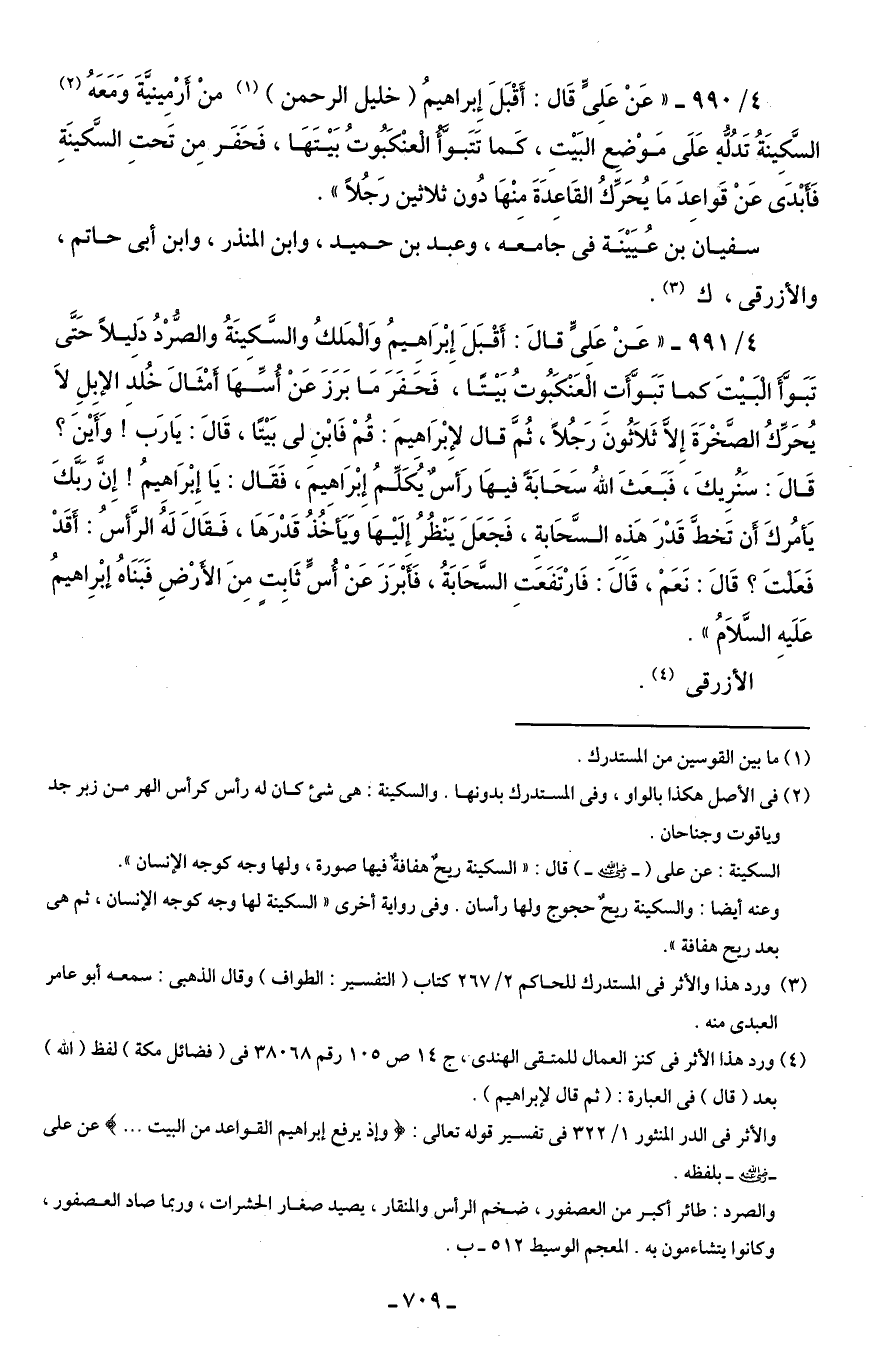 ٤/ ٩٩٠ ـ « عَنْ عَلىٍّ قَال : أَقْبَلَ إِبراهيمُ ( خليل الرحمن ) (١) منْ أَرْمينيَّةَ وَمَعَهُ (٢)
السَّكينَةُ تَدُلُّهِ عَلَى مَـوْضِعِ البَيْت ، كَـما تَتَبـوَّأُ الْعنْكبُوتُ بَيْـتَهَـا ، فَحَفَـرَ مِن تَحتِ السَّكِينَةِ
فَأَبْدَى عَنْ قَواعِدَ مَا يُحَرِّكُ القَاعِدَةَ مِنْهَا دُونَ ثلاثين رَجُلاً » .
سـفيان بن عُـيَيْنَـة فى جامـعه ، وعبـد بن حـميد ، وابن المنذر ، وابن أبى حـاتم ،
والأزرقى ، ك (٣) .
٤/ ٩٩١ ـ « عَـنْ عَلىٍّ قـالَ : أَقْـبَلَ إِبْرَاهِـيمُ وَالْمَلَكُ والسَّكِينَةُ والصُّرْدُ دَلِيـلاً حَتَّى
تَبَـوَّأَ الْبَـيْتَ كمـا تَبَـوَّأَت الْعَنْكَبُوتُ بَيْـتًـا ، فَحَـفَرَ مَـا بَرَزَ عَنْ أُسِّـهَا أَمْثَـالَ خُلد الإِبلِ لاَ
يُحَرِّكُ الصَّخْرَةَ إِلاَّ ثَلاَثُونَ رَجُلاً ، ثُمَّ قـال لإِبْراهيمَ : قُمْ فَابْنِ لِى بَيْتًا ، قَالَ : يَارَب ! وَأَيْنَ ؟
قَـالَ : سَنُريكَ ، فَبَـعَثَ اللهُ سَحَابَةً فيـهَا رَأسٌ يُكَلِّـمُ إِبْرَاهِيمَ ، فَقَـال : يَا إِبْرَاهِيمُ ! إِنَّ رَبَّكَ
يَأمُركَ أَن تَخطَّ قَدْرَ هَذه السَّحَابةِ ، فَجَعَلَ يَنْظُرُ إِلَيْـهَا وَيَأخُذُ قَدْرَهَا ، فَـقَالَ لَهُ الرَّأسُ : أَقَدْ
فَعَلْتَ ؟ قَالَ : نَعَمْ ، قَالَ : فَارْتَفَعَتِ السَّحَابَةُ ، فَأَبْرَزَ عَنْ أُسٍّ ثَابتٍ مِنَ الأَرْضِ فَبَنَاهُ إِبْراهيمُ
عَلَيهِ السَّلاَمُ » .
الأزرقى (٤) .
(١) ما بين القوسين من المستدرك .
(٢) فى الأصل هكذا بالواو ، وفى المسـتدرك بدونهـا . والسكينة : هى شئ كـان له رأس كرأس الهر مـن زبر جد
وياقوت وجناحان .
السكينة : عن على ( ـ رضي الله عنه ـ ) قال : « السكينة ريحٌ هفافةٌ فيها صورة ، ولها وجه كوجه الإنسان ».
وعنه أيضا : والسكينة ريحٌ حجوج ولها رأسان . وفى رواية أخرى « السكينة لها وجه كوجه الإنسان ، ثم هى
بعد ريح هفافة ».
(٣) ورد هذا والأثر فى المستدرك للحـاكم ٢/ ٢٦٧ كتاب ( التفسير : الطواف ) وقال الذهبى : سمعـه أبو عامر
العبدى منه .
(٤) ورد هذا الأثر فى كنز العمال للمتـقى الهندى ، ج ١٤ ص ١٠٥ رقم ٣٨٠٦٨ فى ( فضائل مكة ) لفظ ( الله )
بعد ( قال ) فى العبارة : ( ثم قال لإبراهيم ) .
والأثر فى الدر المنثور ١/ ٣٢٢ فى تفسير قوله تعالى : ﴿ وإذ يرفع إبراهيم القـواعد من البيت ... ﴾ عن على
ـ رضي الله عنه ـ بلفظه .
والصرد : طائر أكبـر من العصفور ، ضـخم الرأس والمنقار ، يصيد صغـار الحشرات ، وربما صاد العـصفور ،
وكانوا يتشاءمون به . المعجم الوسيط ٥١٢ ـ ب .
ـ ٧٠٩ ـ